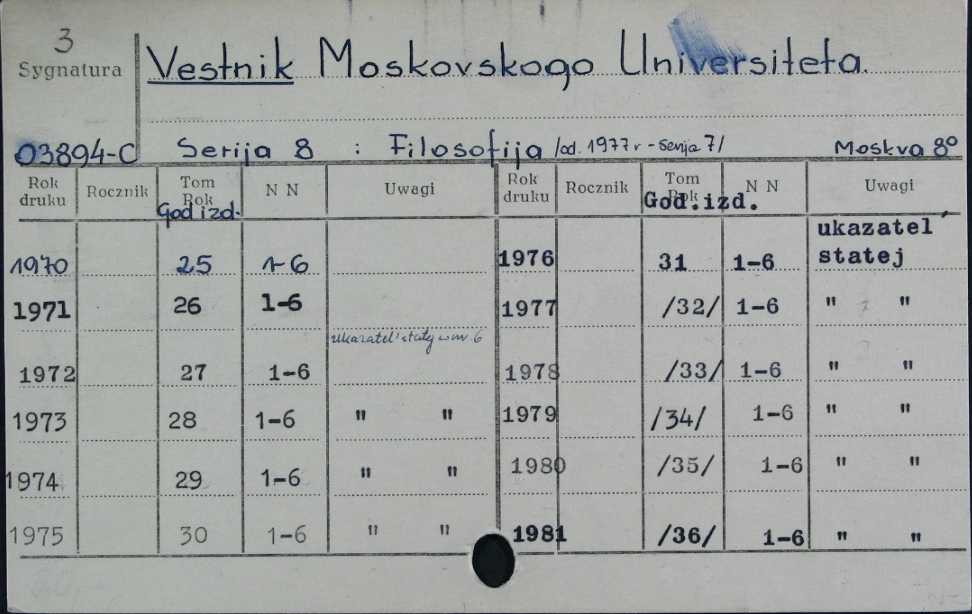 3
Sygnatura
Vestnik Moskovskogo Universiteta.
03894-C Serija 8 : Filosofija /od. 1977 r - serija 7/ Moskva 8°
Rok druku Rocznik Tom Rok God izd. N N Uwagi Rok druku Rocznik Tom Rok God.izd. N N Uwagi
1970 25 1-6 1976 31 1-6 ukazatel' statej
1971 26 1-6 1977 /32/ 1-6 " "
ukazatel' statej w nr 6
1972 27 1-6 1978 /33/ 1-6 " "
1973 28 1-6 " " 1979 /34/ 1-6 " "
1974 29 1-6 " " 1980 /35/ 1-6 " "
1975 30 1-6 " " 1981 /36/ 1-6 " "